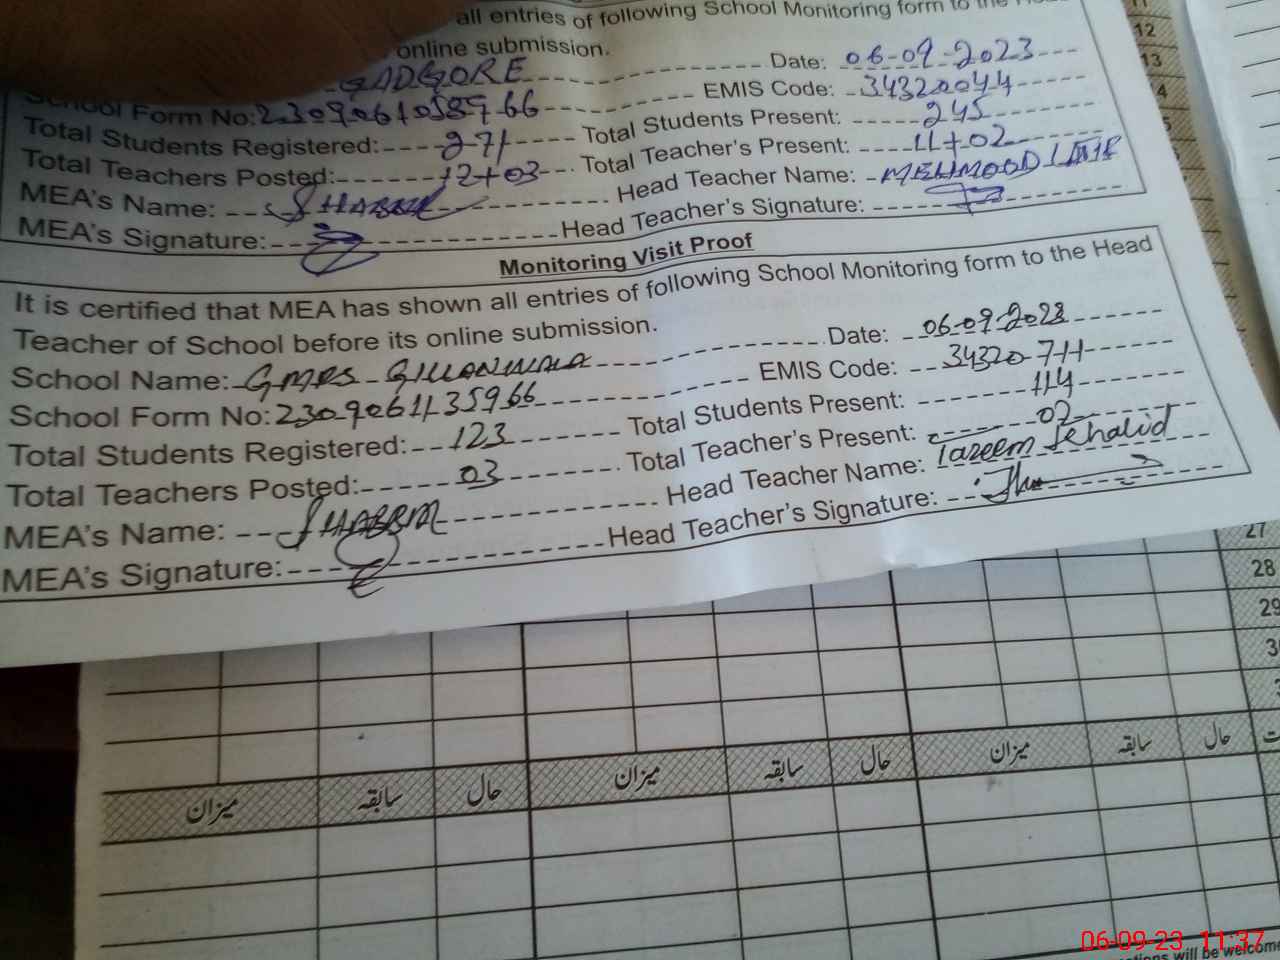 all entries of following School Monitoring form to the Head
online submission.
GADGORE Date: 06-09-2023
School Form No: EMIS Code: 34320044
Total Students Registered: 271 Total Students Present: 245
Total Teachers Posted: 12+03 Total Teacher's Present: 11+02
MEA's Name: SHABBIR Head Teacher Name: MEHMOOD
MEA's Signature: Head Teacher's Signature:
Monitoring Visit Proof
It is certified that MEA has shown all entries of following School Monitoring form to the Head
Teacher of School before its online submission.
School Name: GMPS Date: 06-09-2023
School Form No: 23090611135966 EMIS Code: 34320711
Total Students Registered: 123 Total Students Present: 114
Total Teachers Posted: 03 Total Teacher's Present: 02
MEA's Name: SHABBIR Head Teacher Name: Tazeem Khalid
MEA's Signature: Head Teacher's Signature:
12
13
27
28
29
میزان سابقہ حال میزان سابقہ حال میزان سابقہ حال
will be welcome
06-09-23 11:37